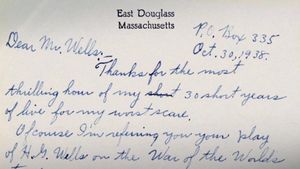 East Douglass
Massachusetts
P.O. Box 335
Oct. 30, 1938.
Dear Mr. Wells:-
Thanks for the most
thrilling hour of my short 30 short years
of live for my worst scare.
Of course I'm refering you your play
of H.G. Wells on the War of the Worlds